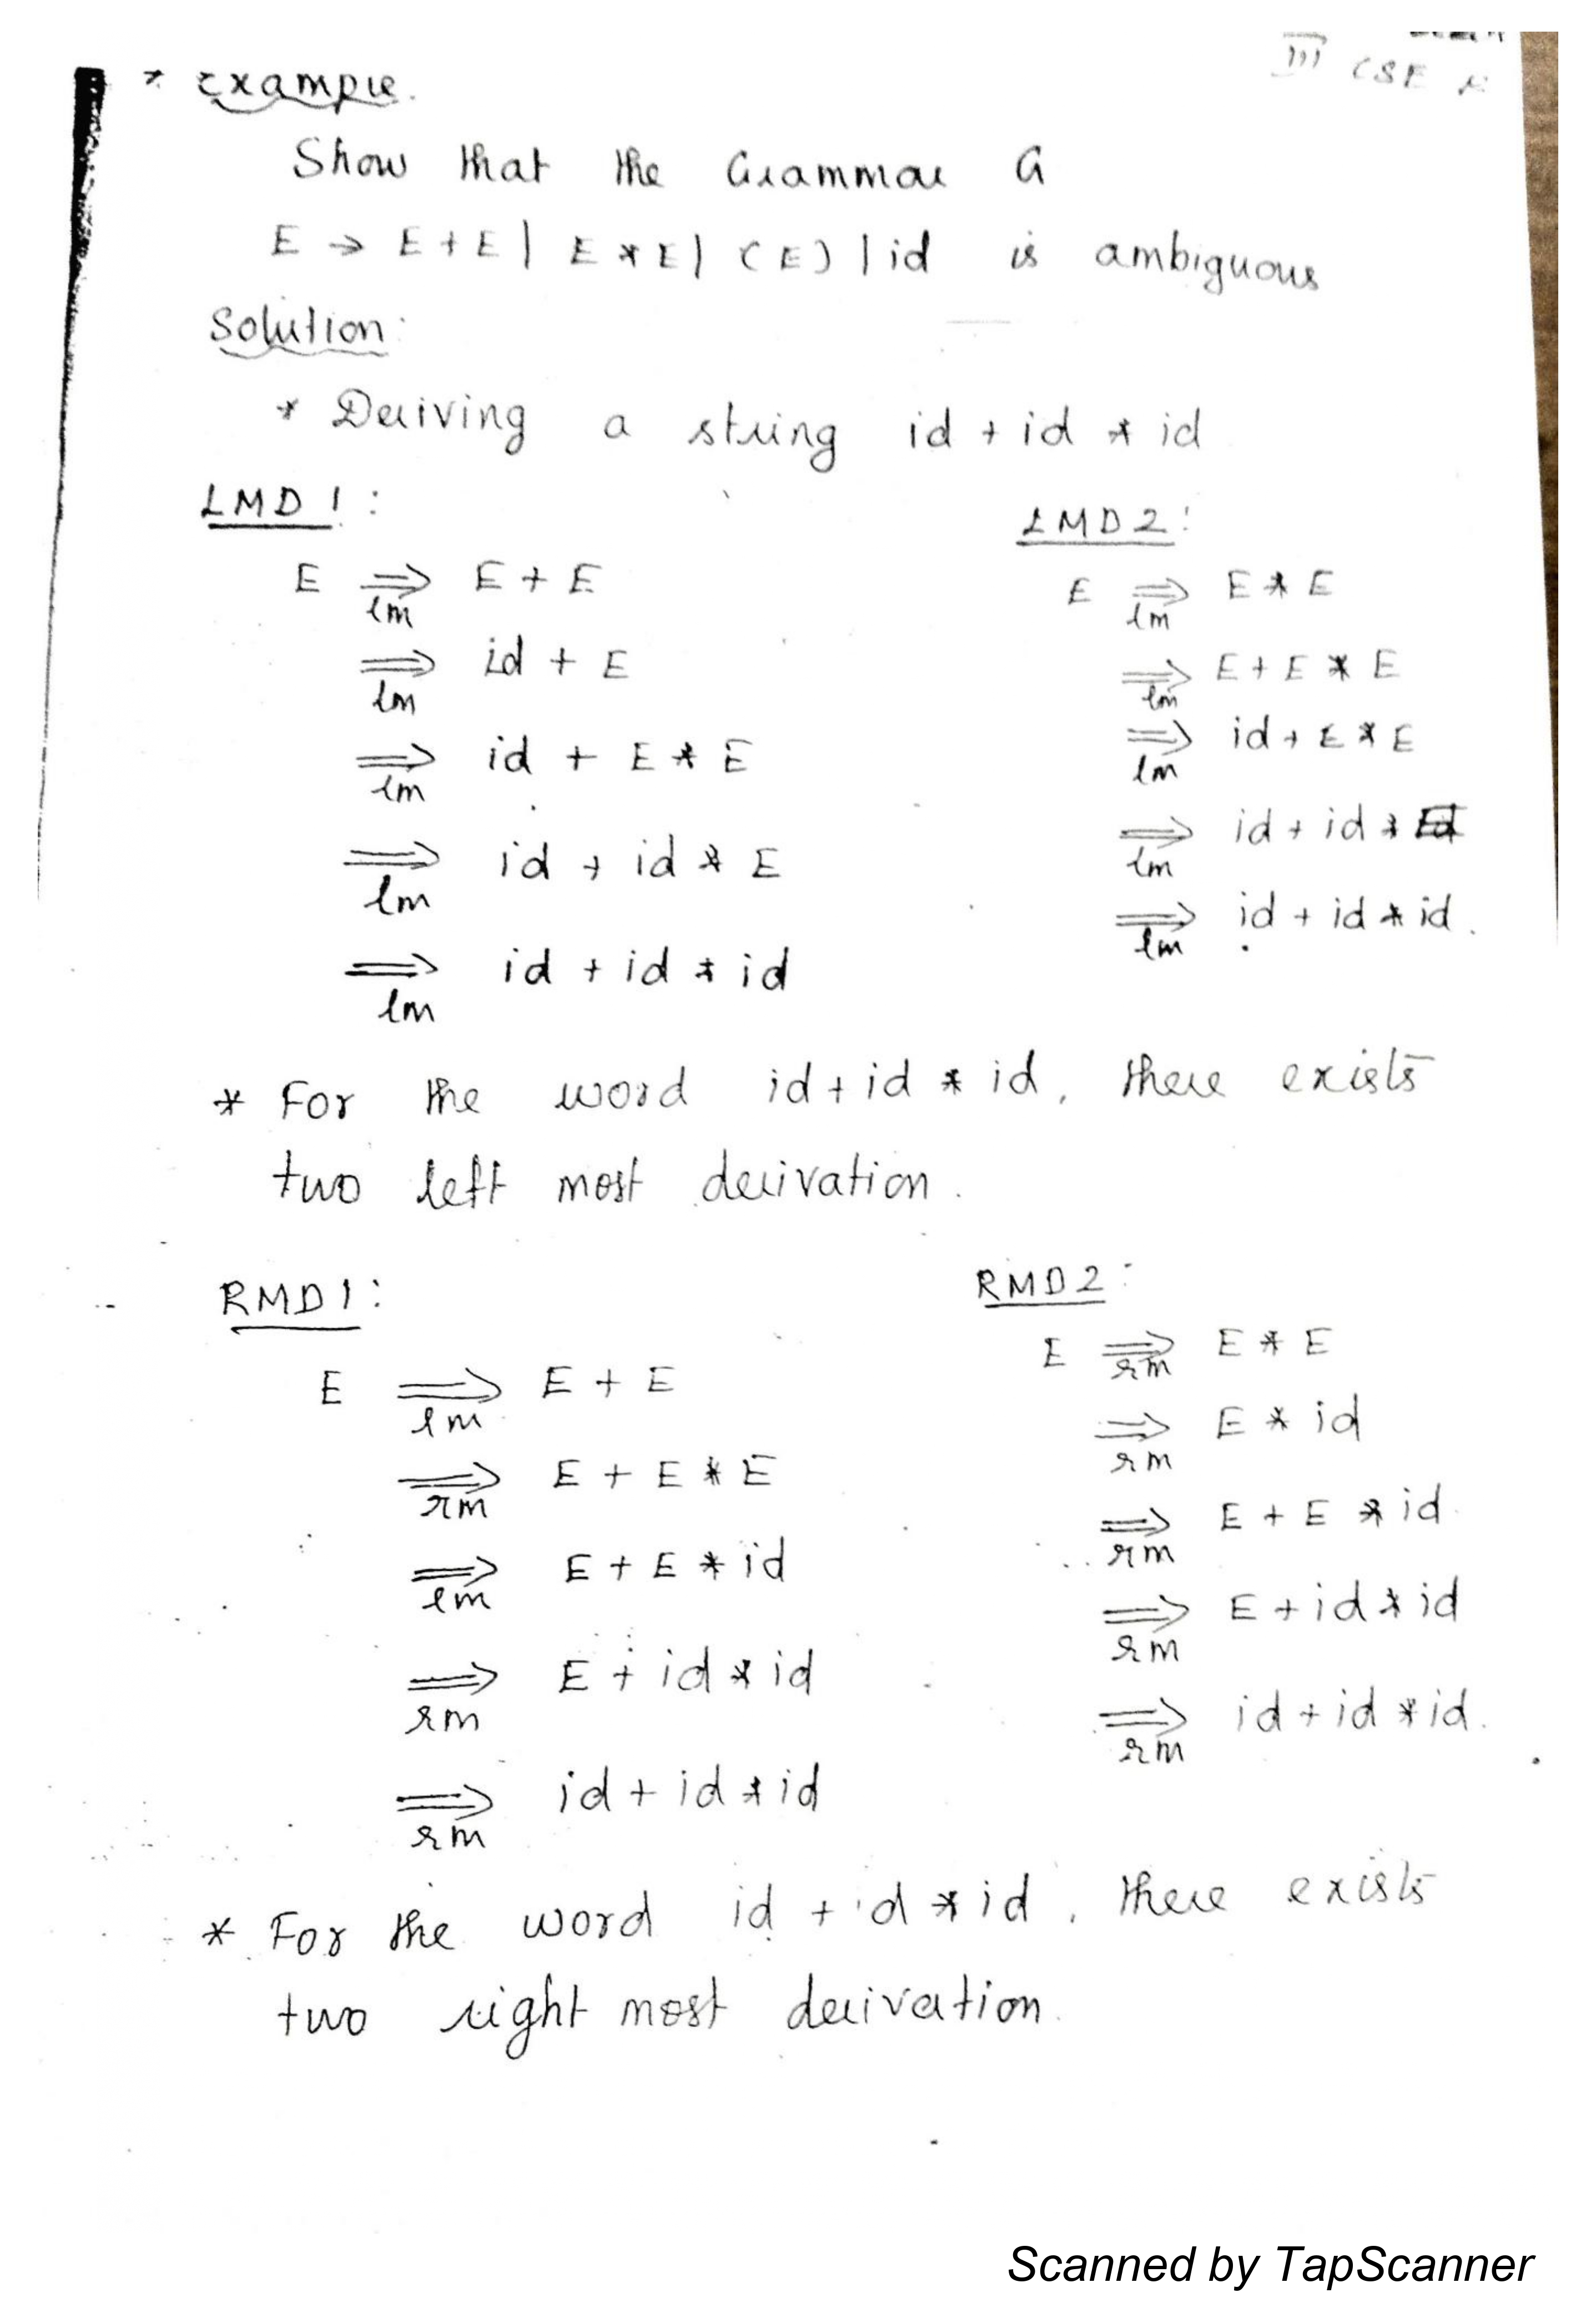 III CSE
* Example.
Show that the Grammar G
E → E+E | E*E | (E) | id is ambiguous
Solution:
* Deriving a string id + id * id
LMD 1:
E ⟹ E + E
lm
⟹ id + E
lm
⟹ id + E * E
lm
⟹ id + id * E
lm
⟹ id + id * id
lm
LMD 2:
E ⟹ E * E
lm
⟹ E + E * E
lm
⟹ id + E * E
lm
⟹ id + id *
lm
⟹ id + id * id.
lm
* For the word id + id * id, there exists
two left most derivation.
RMD 1:
E ⟹ E + E
lm
⟹ E + E * E
rm
⟹ E + E * id
lm
⟹ E + id * id
rm
⟹ id + id * id
rm
RMD 2:
E ⟹ E * E
rm
⟹ E * id
rm
⟹ E + E * id
rm
⟹ E + id * id
rm
⟹ id + id * id.
rm
* For the word id + id * id, there exists
two right most derivation.
Scanned by TapScanner